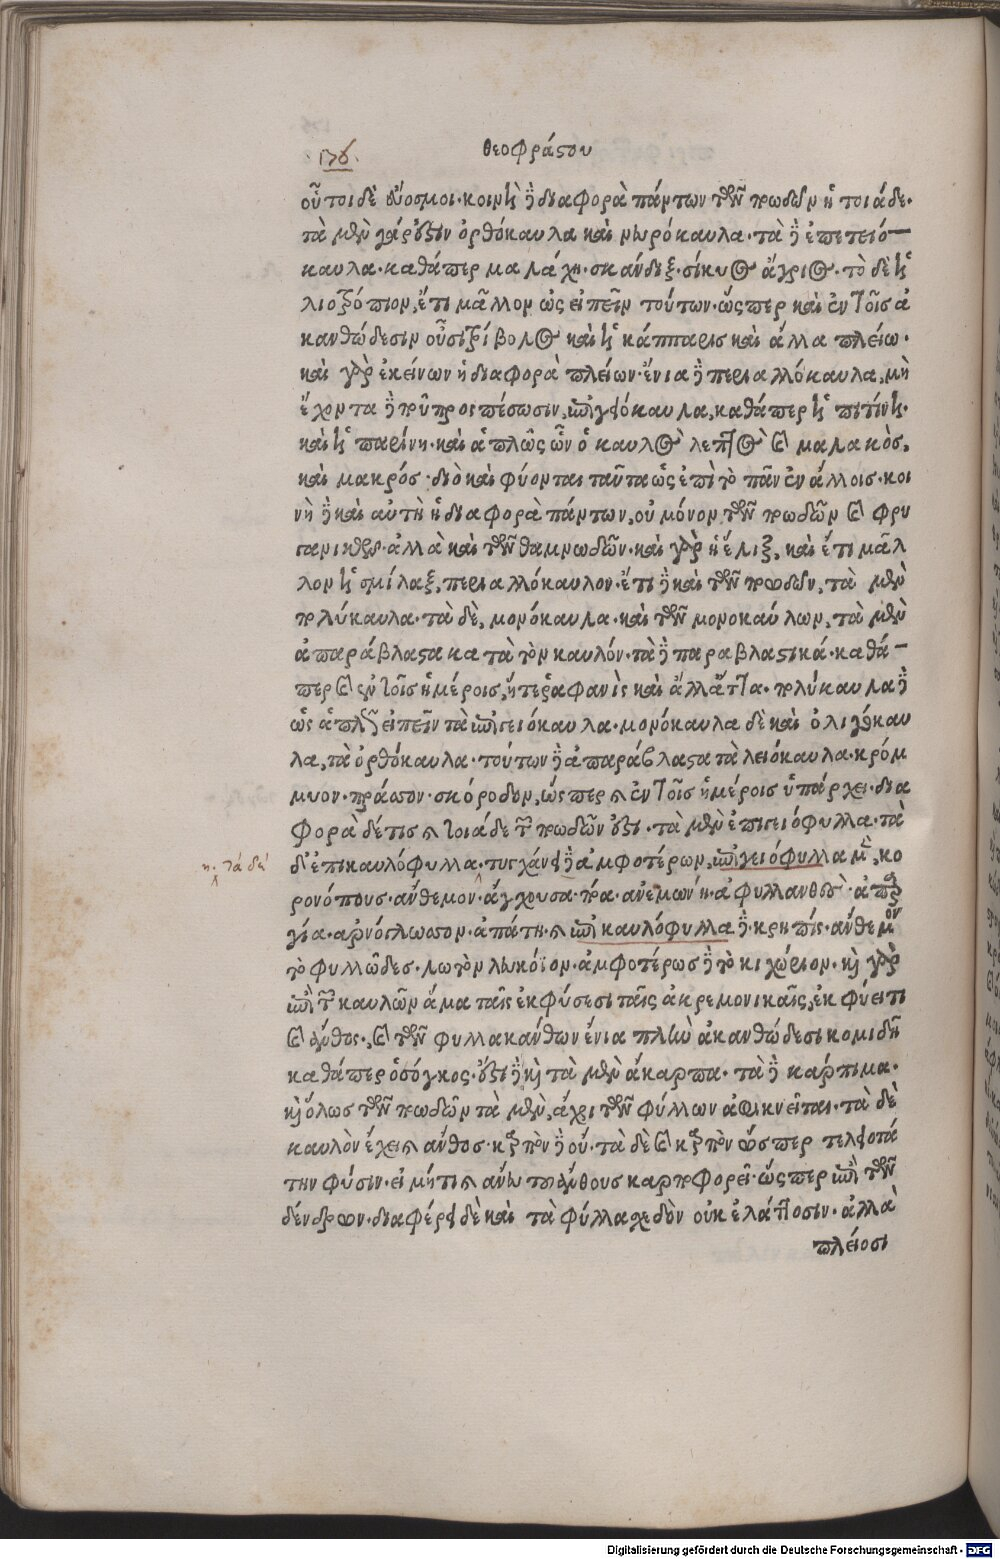 176.
θεοφράστου
οὗτοι δὲ εὔοσμοι. κοινὴ δὲ διαφορὰ πάντων τῶν ποωδῶν ἡ τοιάδε.
τὰ μὲν γάρ ἐστιν ὀρθόκαυλα καὶ νευρόκαυλα. τὰ δὲ ἐπετειό
καυλα. καθάπερ μαλάχη. σκάνδιξ. σίκυος ἄγριος. τὸ δὲ ἡ
λιοτρόπιον, ἔτι μᾶλλον ὡς εἰπεῖν τούτων. ὥσπερ καὶ ἐν τοῖς ἀ
κανθώδεσιν οὗσι τρίβολος καὶ ἡ κάππαρις καὶ ἄλλα πλείω.
καὶ γὰρ ἐκείνων ἡ διαφορὰ πλείων. ἔνια δὲ περιαλλόκαυλα, μὴ
ἔχοντα δὲ ποῦ προσπέσωσιν, ἐπιγειόκαυλα, καθάπερ ἡ πιτίνη.
καὶ ἡ παρίνη. καὶ ἁπλῶς ὧν ὁ καυλὸς λεπτὸς καὶ μαλακὸς,
καὶ μακρός. διὸ καὶ φύονται ταῦτα ὡς ἐπὶ τὸ πᾶν ἐν ἄλλοις. κοι
νὴ δὲ καὶ αὐτὴ ἡ διαφορὰ πάντων, οὐ μόνον τῶν ποωδῶν καὶ φρυ
γανικῶν. ἀλλὰ καὶ τῶν θαμνωδῶν. καὶ γὰρ ἡ ἕλιξ, καὶ ἔτι μᾶλ
λον ἡ σμίλαξ, περιαλλόκαυλον. ἔτι δὲ καὶ τῶν ποωδῶν, τὰ μὲν
πολύκαυλα. τὰ δὲ, μονόκαυλα. καὶ τῶν μονοκαύλων, τὰ μὲν
ἀπαράβλαστα κατὰ τὸν καυλόν. τὰ δὲ παραβλαστικά. καθά
περ καὶ ἐν τοῖς ἡμέροις, ἥ τε ῥαφανὶς καὶ ἄλλ' ἄττα. πολύκαυλα δὲ
ὡς ἁπλῶς εἰπεῖν τὰ ἐπιγειόκαυλα. μονόκαυλα δὲ καὶ ὀλιγόκαυ
λα, τὰ ὀρθόκαυλα. τούτων δὲ ἀπαράβλαστα τὰ λειόκαυλα. κρόμ
μυον. πράσον. σκόροδον, ὥσπερ καὶ ἐν τοῖς ἡμέροις ὑπάρχει. δια
φορὰ δέ τις καὶ τοιάδε τῶν ποωδῶν ἐστι. τὰ μὲν ἐπιγειόφυλλα. τὰ
δ' ἐπικαυλόφυλλα. τυγχάνει δὲ ἀμφοτέρων, ἐπιγειόφυλλα μὲν, κο
η. τὰ δὲ
ρονόπους. ἄνθεμον. ἄγχουσα. πόα. ἀνεμώνη. ἀφυλλανθὲς. ἀπαρ
γία. ἀρνόγλωσσον. ἀπάτη. καὶ ἐπικαυλόφυλλα δὲ. κρηπίς. ἄνθεμον
τὸ φυλλῶδες. λωτὸν λευκόϊον. ἀμφοτέρως δὲ τὸ κιχώριον. καὶ γὰρ
ἐπὶ τῶν καυλῶν ἅμα ταῖς ἐκφύσεσι ταῖς ἀκρεμονικαῖς, ἐκφύει τι
καὶ ἄνθος, καὶ τῶν φυλλακάνθων ἔνια πλὴν ἀκανθώδεσι κομιδῇ
καθάπερ ὁ σόγκος. ἔστι δὲ καὶ τὰ μὲν ἄκαρπα. τὰ δὲ κάρπιμα.
καὶ ὅλως τῶν ποωδῶν τὰ μὲν, ἄχρι τῶν φύλλων ἀφικνεῖται. τὰ δὲ
καυλὸν ἔχει καὶ ἄνθος. καρπὸν δὲ οὔ. τὰ δὲ καὶ καρπὸν ὥσπερ τελειοτά
την φύσιν. εἰ μή τι καὶ ἄνευ τοῦ ἄνθους καρποφορεῖ. ὥσπερ ἐπὶ τῶν
δένδρων. διαφέρει δὲ καὶ τὰ φύλλα σχεδὸν οὐκ ἐλάττοσιν. ἀλλὰ
πλείοσι
Digitalisierung gefördert durch die Deutsche Forschungsgemeinschaft - DFG